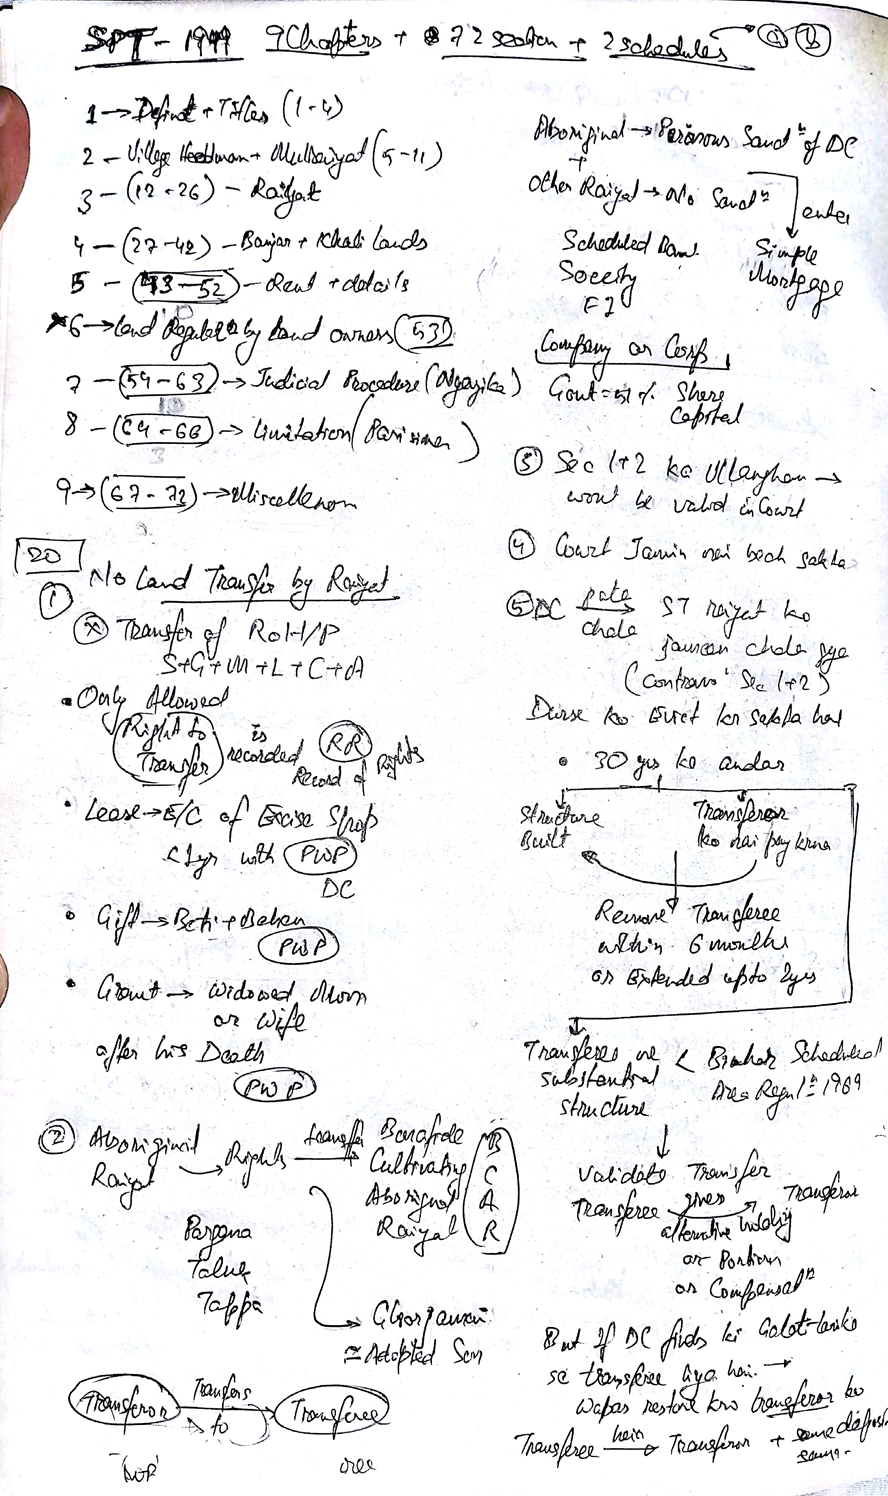 SPT - 1949 9 Chapters + 72 section + 2 schedules → (a) (b)
1 → Definat + Titles (1-4)
2 - Village Headman + Mulraiyat (5-11)
3 - (12-26) - Raiyat
4 - (27-42) - Banjar + Khali Lands
5 - (43-52) - Rent + details
6 → Land by Land owners (53)
7 - (54-63) → Judicial Procedure (Nyayika)
10
8 - (64-66) → Limitation (Parisiman)
3
9 → (67-72) → Miscellenom
20
① No Land Transfer by Raiyat
(x) Transfer of RoH/P
S+G+M+L+C+A
• Only Allowed
Right to Transfer is recorded RR
Record of Rights
• Lease → E/C of Excise Shop
< 1yr with PWP
DC
• Gift → Beti + Behen
PWP
• Grant → Widowed Mom
or Wife
after his Death
PWP
② Aboriginil Raiyat → Rights transfer → Bonafide
Cultivating
Aboriginal
Raiyat
B
C
A
R
Pargana
Taluk
Tappa
→ Gharjamai
≅ Adopted Son
Transferor Transfers to → Transferee
Aboriginal → Previous Sandn of DC
+
Other Raiyat → No Sandn
enter
Simple
Mortgage
Scheduled Bank
Society
FI
Company or Corp.
Govt = 51% Share
Capital
③ Sec 1+2 ka Ullanghan →
won't be valid in Court
④ Court Jamin nai bech sakta
⑤ DC pata chala → ST raiyat ko
jameen chala gya
(contrav' Sec 1+2)
Dusre ko Evict kr sakta hai
• 30 yrs ke andar
Structure
Built
Transferor
ko nai pay krna
Remove Transferee
within 6 months
or Extended upto 2yrs
Transferee ne
substantial
structure
< Bihar Scheduled
Area Reguln 1969
Validate Transfer
Transferee gives → Transferor
alternative holding
or Portion
or Compensatn
But If DC finds ki Galat-tarike
se transferee liya hai →
wapas restore kro transferor ko
Transferee → Transferor + same
same.